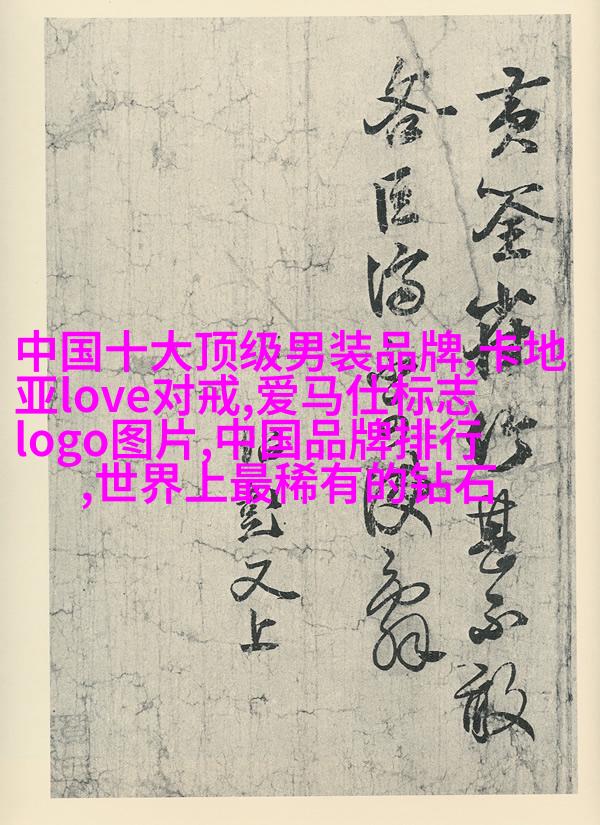 中国十大顶级男装品牌,卡地
亚love对戒,爱马仕标志
logo图片,中国品牌排行
,世界上最稀有的钻石
黄筌雀竹甚不敢
又上